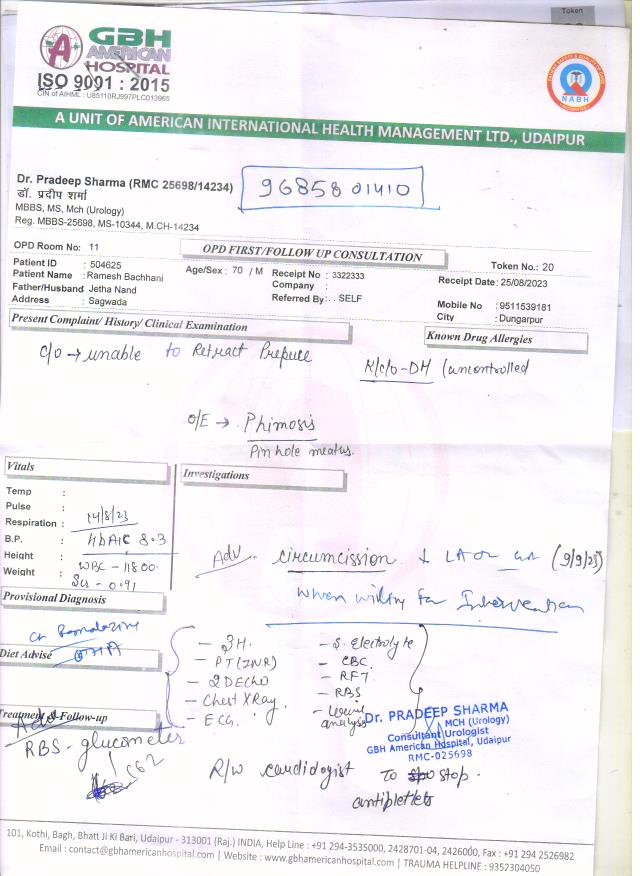 Token
GBH
AMERICAN
HOSPITAL
ISO 9001 : 2015
CIN of AIHML : U85110RJ997PLC013965
NABH
A UNIT OF AMERICAN INTERNATIONAL HEALTH MANAGEMENT LTD., UDAIPUR
Dr. Pradeep Sharma (RMC 25698/14234)
डॉ. प्रदीप शर्मा
MBBS, MS, Mch (Urology)
Reg. MBBS-25698, MS-10344, M.CH-14234
96858 01410
OPD Room No: 11
OPD FIRST/FOLLOW UP CONSULTATION
Token No.: 20
Patient ID : 504625
Age/Sex : 70 / M
Receipt No : 3322333
Receipt Date : 25/08/2023
Patient Name : Ramesh Bachhani
Company :
Father/Husband Jetha Nand
Referred By : . . SELF
Mobile No : 9511539181
Address : Sagwada
City : Dungarpur
Present Complaint/ History/ Clinical Examination
Known Drug Allergies
C/O → unable to Retract Prepuce
K/C/O - DM (uncontrolled
O/E → Phimosis
Pin hole meatus.
Vitals
Investigations
Temp :
Pulse :
Respiration : 14/8/23
B.P. : HbA1C 8.3
Height : WBC - 11800
Weight : Scr - 0.91
Adv. circumcission LA (9/9/23)
when willing for Intervention
Provisional Diagnosis
Diet Advise
- BH.
- PT (INR)
- 2DECHO
- Chest X Ray.
- ECG.
- S. Electrolyte
- CBC.
- RFT.
- RBS
- analysis
Treatment & Follow-up
Adv
RBS - glucometer
562
Dr. PRADEEP SHARMA
MCH (Urology)
Consultant Urologist
GBH American Hospital, Udaipur
RMC-025698
R/w cardiologist To stop.
antipletlets
101, Kothi, Bagh, Bhatt Ji Ki Bari, Udaipur - 313001 (Raj.) INDIA, Help Line : +91 294-3535000, 2428701-04, 2426000, Fax : +91 294 2526982
Email : contact@gbhamericanhospital.com | Website : www.gbhamericanhospital.com | TRAUMA HELPLINE : 9352304050